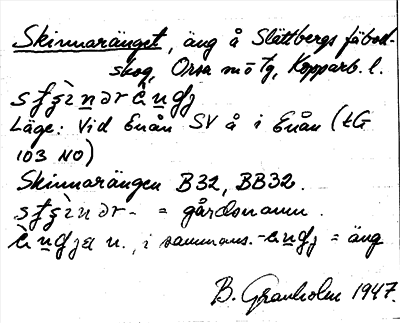 Skinnaränget, äng å Slättbergs fäbod-
skog, Orsa m o Tg, Kopparb. l.
Läge: Vid Enån SV å i Enån (tG
103 NO)
Skinnarängen B32, BB32.
= gårdsnamn.
n., i sammans. = äng
B. Granholm 1947.